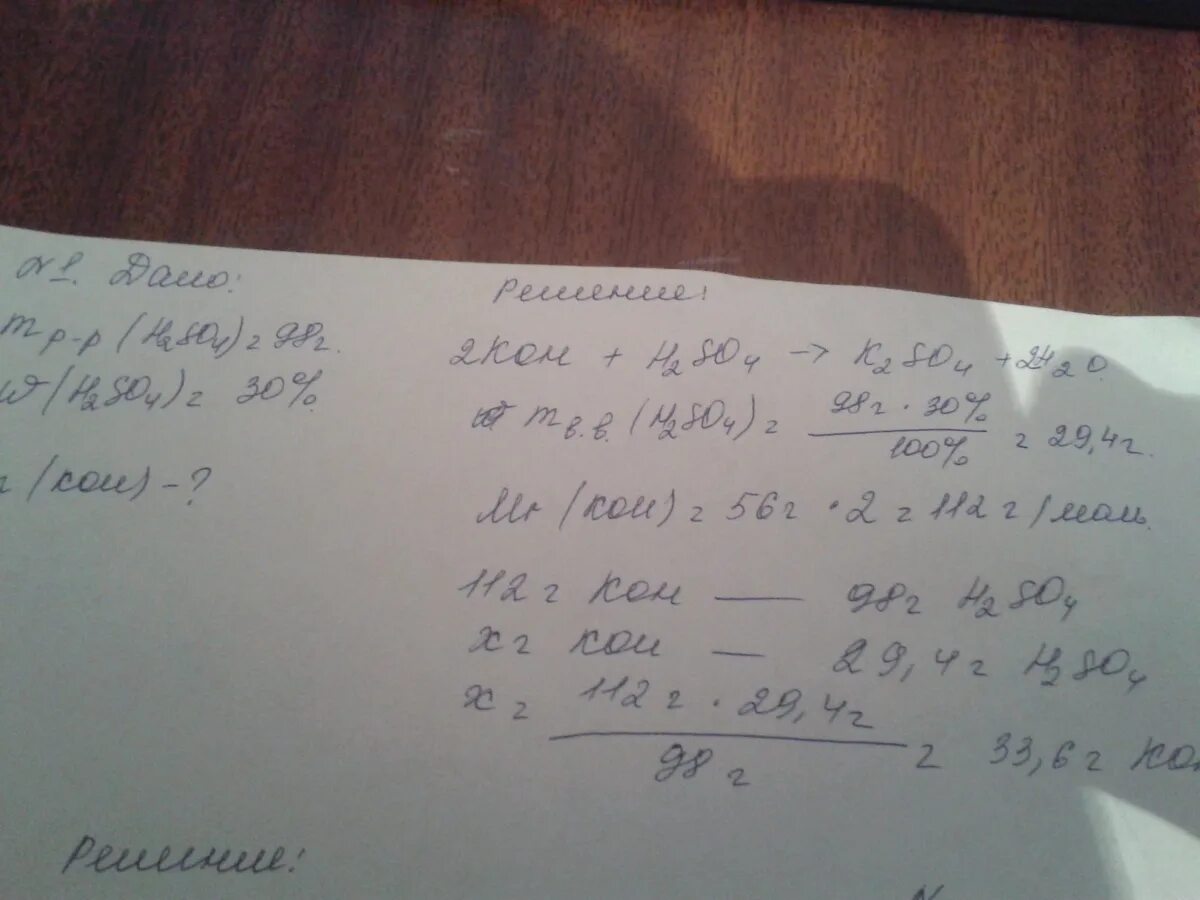 №1. Дано:
mр-р (H₂SO₄) = 98г.
ω (H₂SO₄) = 30%.
(KOH) - ?
Решение:
2KOH + H₂SO₄ → K₂SO₄ + 2H₂O.
mв.в. (H₂SO₄) = 98г · 30% / 100% = 29,4г.
Mr (KOH) = 56г · 2 = 112г/моль.
112г KOH — 98г H₂SO₄
xг KOH — 29,4г H₂SO₄
x = 112г · 29,4г / 98г = 33,6г KOH
Решение: